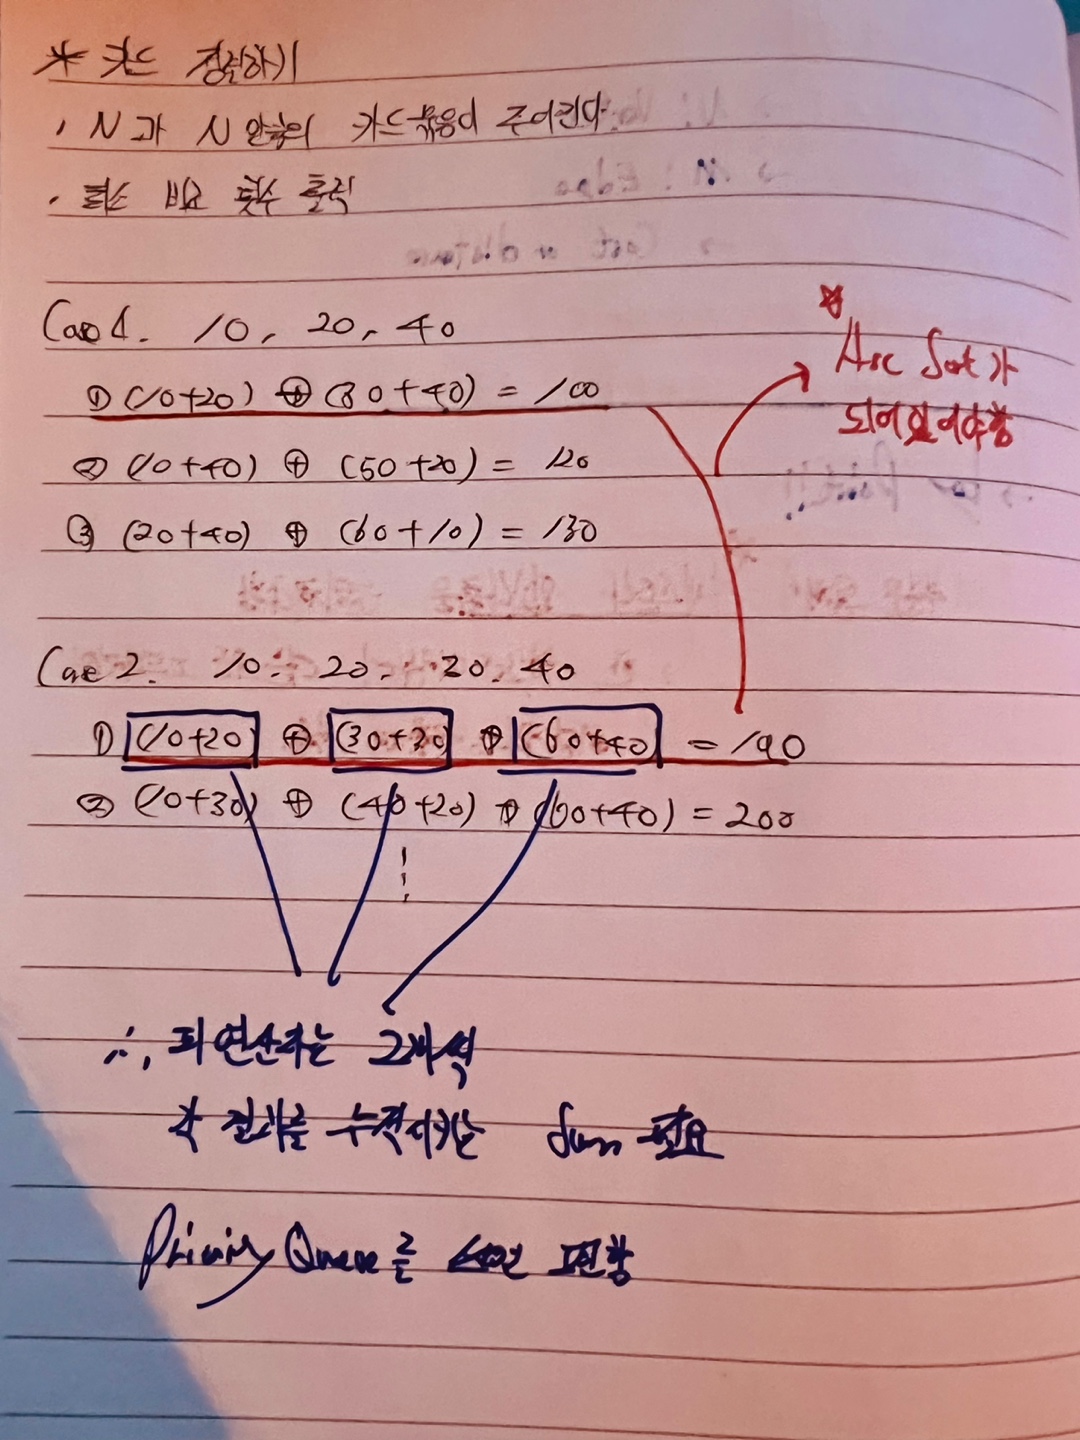 * 카드 정렬하기
· N과 N 만큼의 카드묶음이 주어진다
· 최소 비교 횟수 출력
Case 1. 10, 20, 40
① (10+20) ⊕ (30+40) = 100
② (10+40) ⊕ (50+20) = 120
③ (20+40) ⊕ (60+10) = 130
☆ Asc Sort가
되어있어야함
Case 2. 10. 20. 30. 40
① (10+20) ⊕ (30+30) ⊕ (60+40) = 190
② (10+30) ⊕ (40+20) ⊕ (60+40) = 200
∴, 피연산자는 2개씩
각 결과를 누적시키는 Sum 필요
Priority Queue를 쓰면 편함